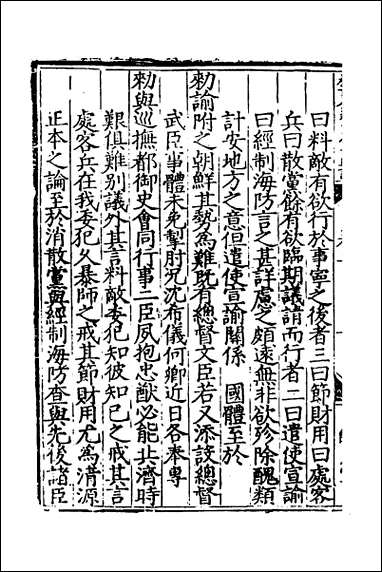 曰料敵有欲行於事寧之後者三曰節財用曰處客
兵曰散黨餘有欲臨期議請而行者二曰遣使宣諭
曰經制海防言之甚詳慮之頗遠無非欲殄除醜類
計安地方之意但遣使宣諭關係　國體至於
勑諭附之朝鮮其勢為難既有總督文臣若又添設總督
武臣事體未免掣肘况沈希儀何卿近日各奉專
勑與巡撫都御史會同行事二臣夙抱忠猷必能共濟時
艱俱難別議外其言料敵委犯知彼知己之戒其言
處客兵在我委犯久暴師之戒其節財用尤為清源
正本之論至於消散黨與經制海防查與先後諸臣